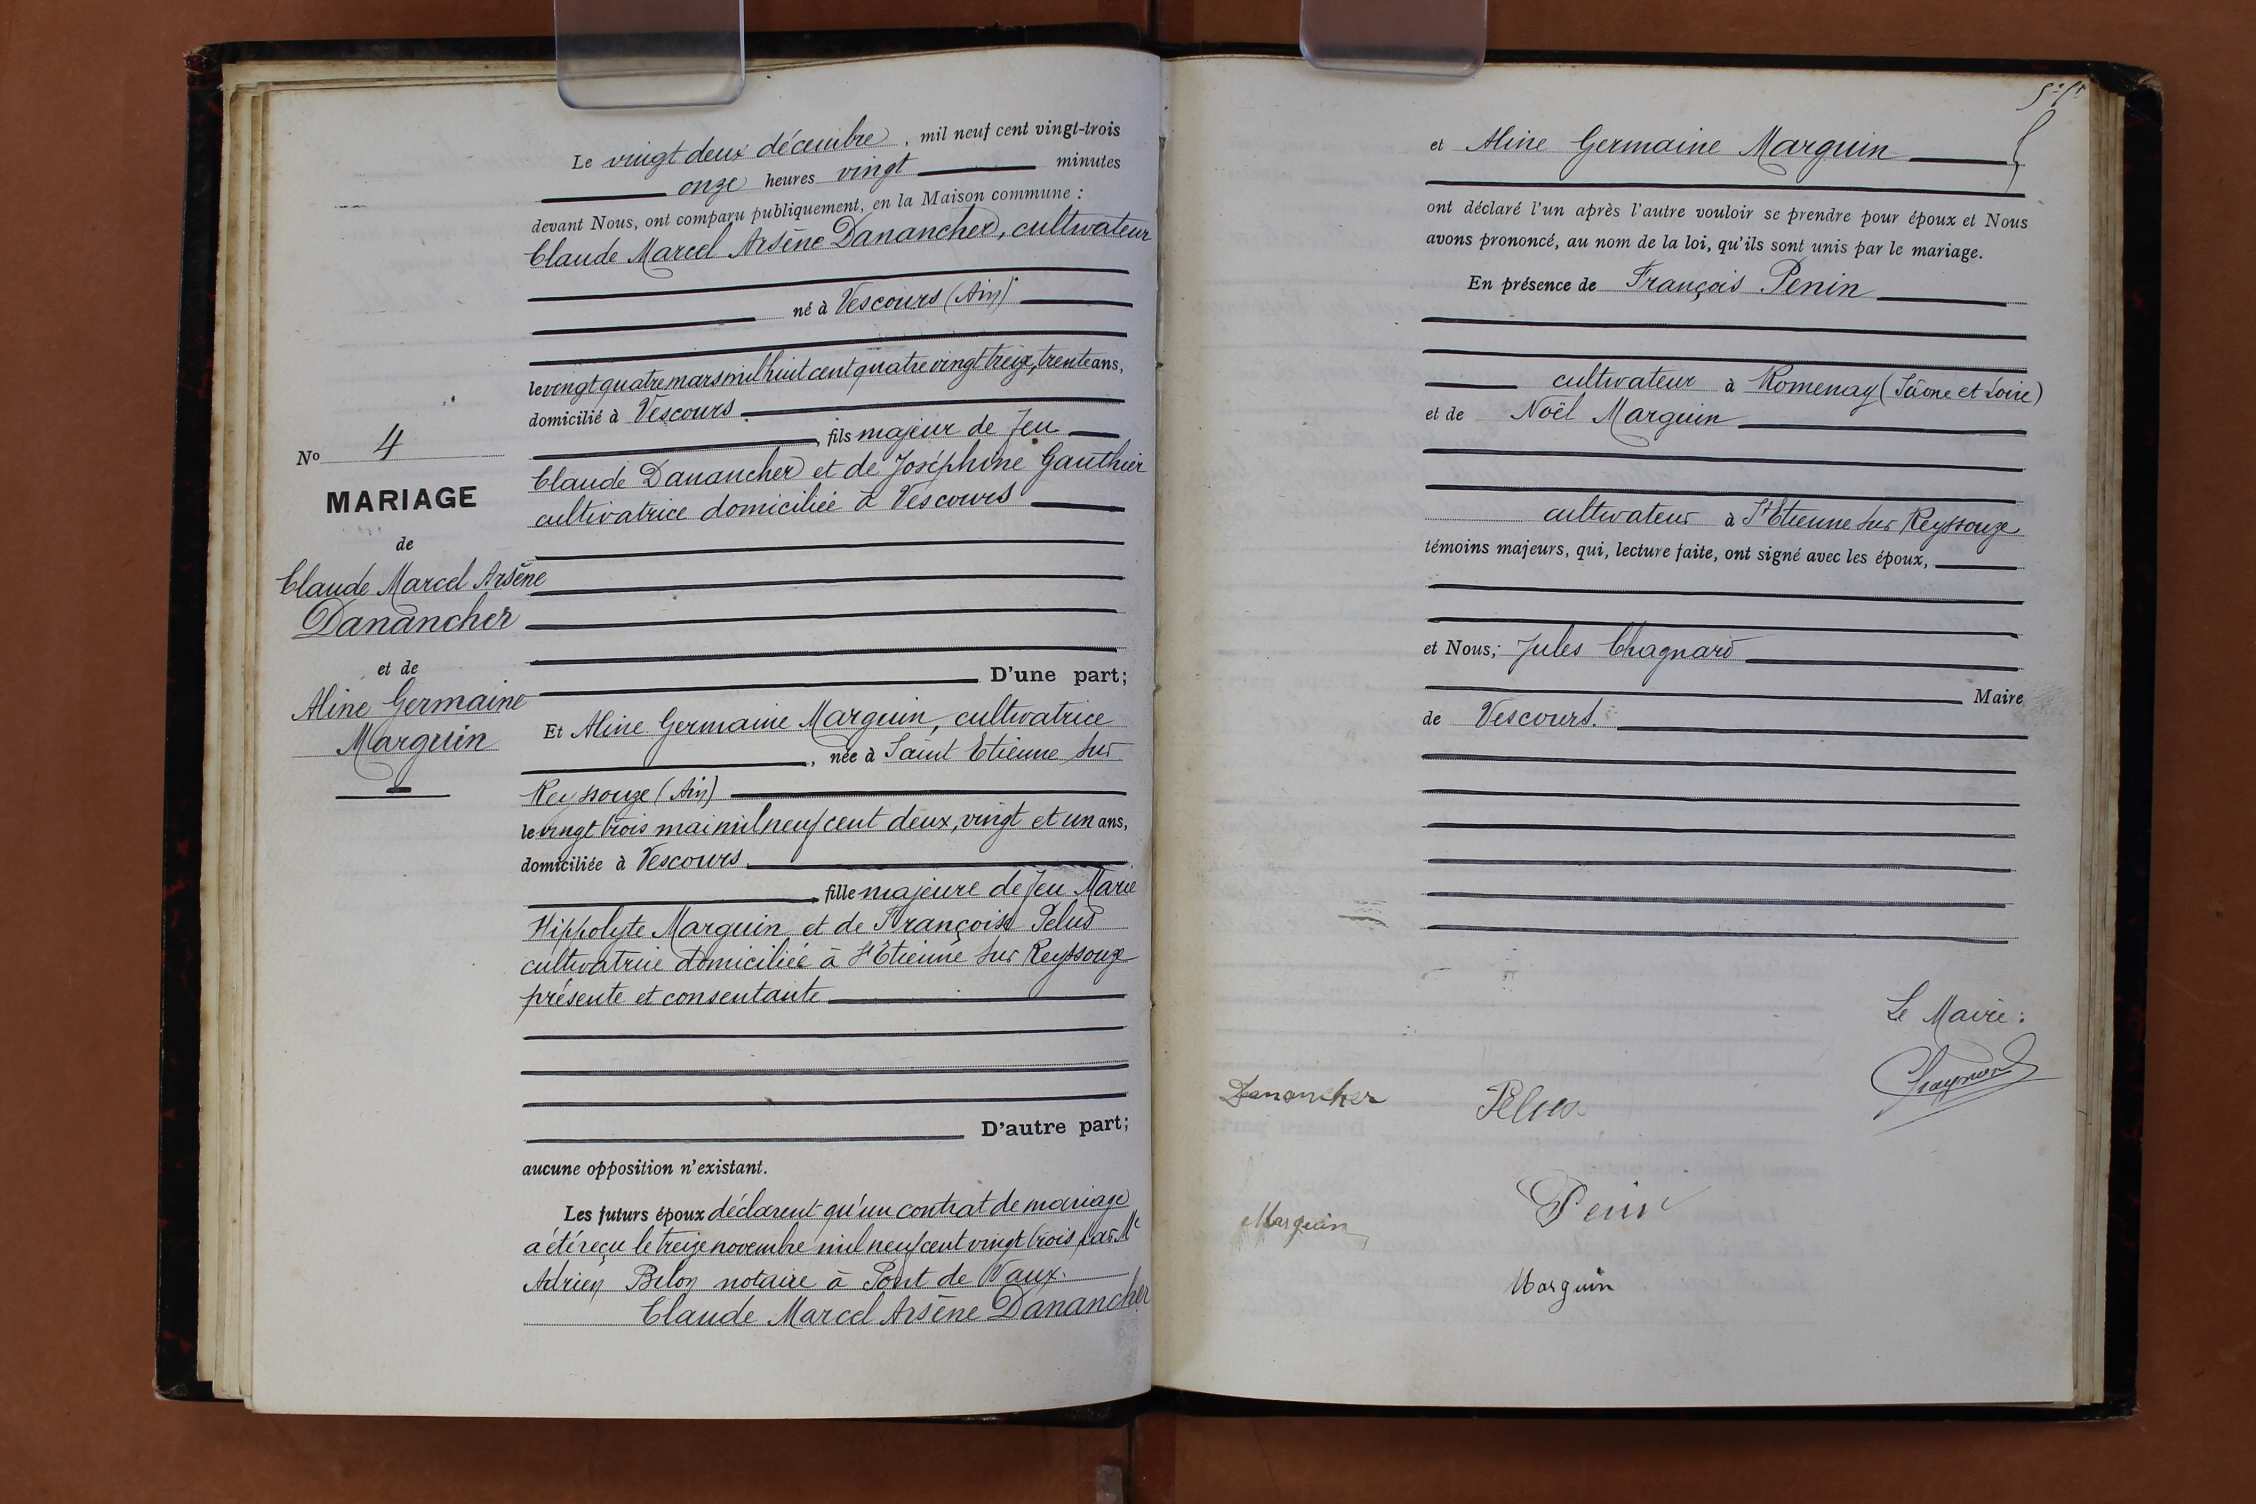 Le vingt deux décembre, mil neuf cent vingt-trois
onze heures vingt minutes
devant Nous, ont comparu publiquement, en la Maison commune :
Claude Marcel Arsène Danancher, cultivateur
né à Vescours (Ain)
le vingt quatre mars mil huit cent quatre vingt treize, trente ans,
domicilié à Vescours
, fils majeur de feu
Claude Danancher et de Joséphine Gauthier
cultivatrice domiciliée à Vescours
D'une part;
Et Aline Germaine Marguin, cultivatrice
, née à Saint Etienne sur
Reyssouze (Ain)
le vingt trois mai mil neuf cent deux, vingt et un ans,
domiciliée à Vescours
, fille majeure de feu Marie
Hippolyte Marguin et de Françoise Pelus
cultivatrice domiciliée à St Etienne sur Reyssouze
présente et consentante
D'autre part;
aucune opposition n'existant.
Les futurs époux déclarent qu'un contrat de mariage
a été reçu le treize novembre mil neuf cent vingt trois par Me
Adrien Belon notaire à Pont de Vaux.
Claude Marcel Arsène Danancher
No 4
MARIAGE
de
Claude Marcel Arsène
Danancher
et de
Aline Germaine
Marguin
et Aline Germaine Marguin
ont déclaré l'un après l'autre vouloir se prendre pour époux et Nous
avons prononcé, au nom de la loi, qu'ils sont unis par le mariage.
En présence de François Penin
cultivateur à Romenay (Saône et Loire)
et de Noël Marguin
cultivateur à St Etienne sur Reyssouze
témoins majeurs, qui, lecture faite, ont signé avec les époux,
et Nous, Jules Chagnard
Maire
de Vescours.
Le Maire :
Chagnard
Danancher
Pelus
Penin
Marguin
Marguin